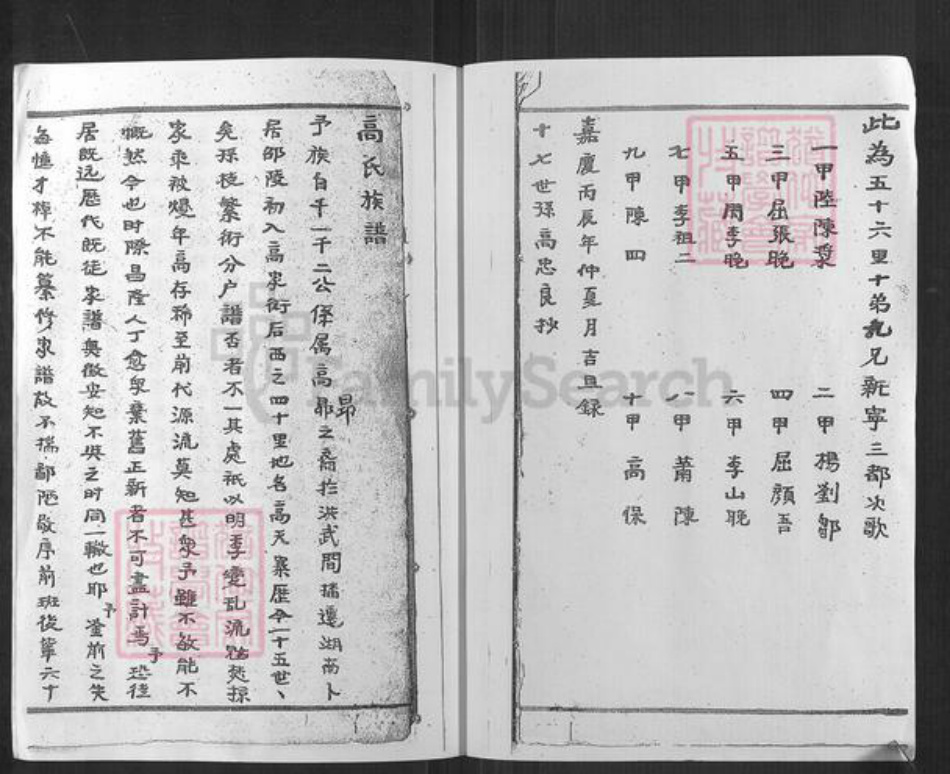 此為五十六里十弟兄新寧三都次歌
一甲陸陳
二甲楊劉鄒
三甲屈張晚
四甲屈顏吾
五甲周李晚
六甲李山晚
七甲李祖二
八甲蕭陳
九甲陳四
十甲高保
嘉慶丙辰年仲夏月吉旦録
十七世孫高忠良抄
高氏族譜
予族自千一千二公係属高鼎昂之裔於洪武間播遷湖南卜
居邵陵初入高家衖后西之四十里地名高天寨歷今一十五世、
矣孫枝繁衍分户譜否者不一其處祇以明季變乱流焚掠
家乘被燬年高存稀至前代源流莫知甚衆予雖不敏能不
慨然今也时際昌隆人丁愈衆棄舊正新者不可盡計焉予恐往
居既远歷代既徒家譜奥微安知不與之时同一轍也耶予鉴前之失
每憶才椊不能纂修家譜故不揣鄙陋敬序前班後輩六十
FamilySearch